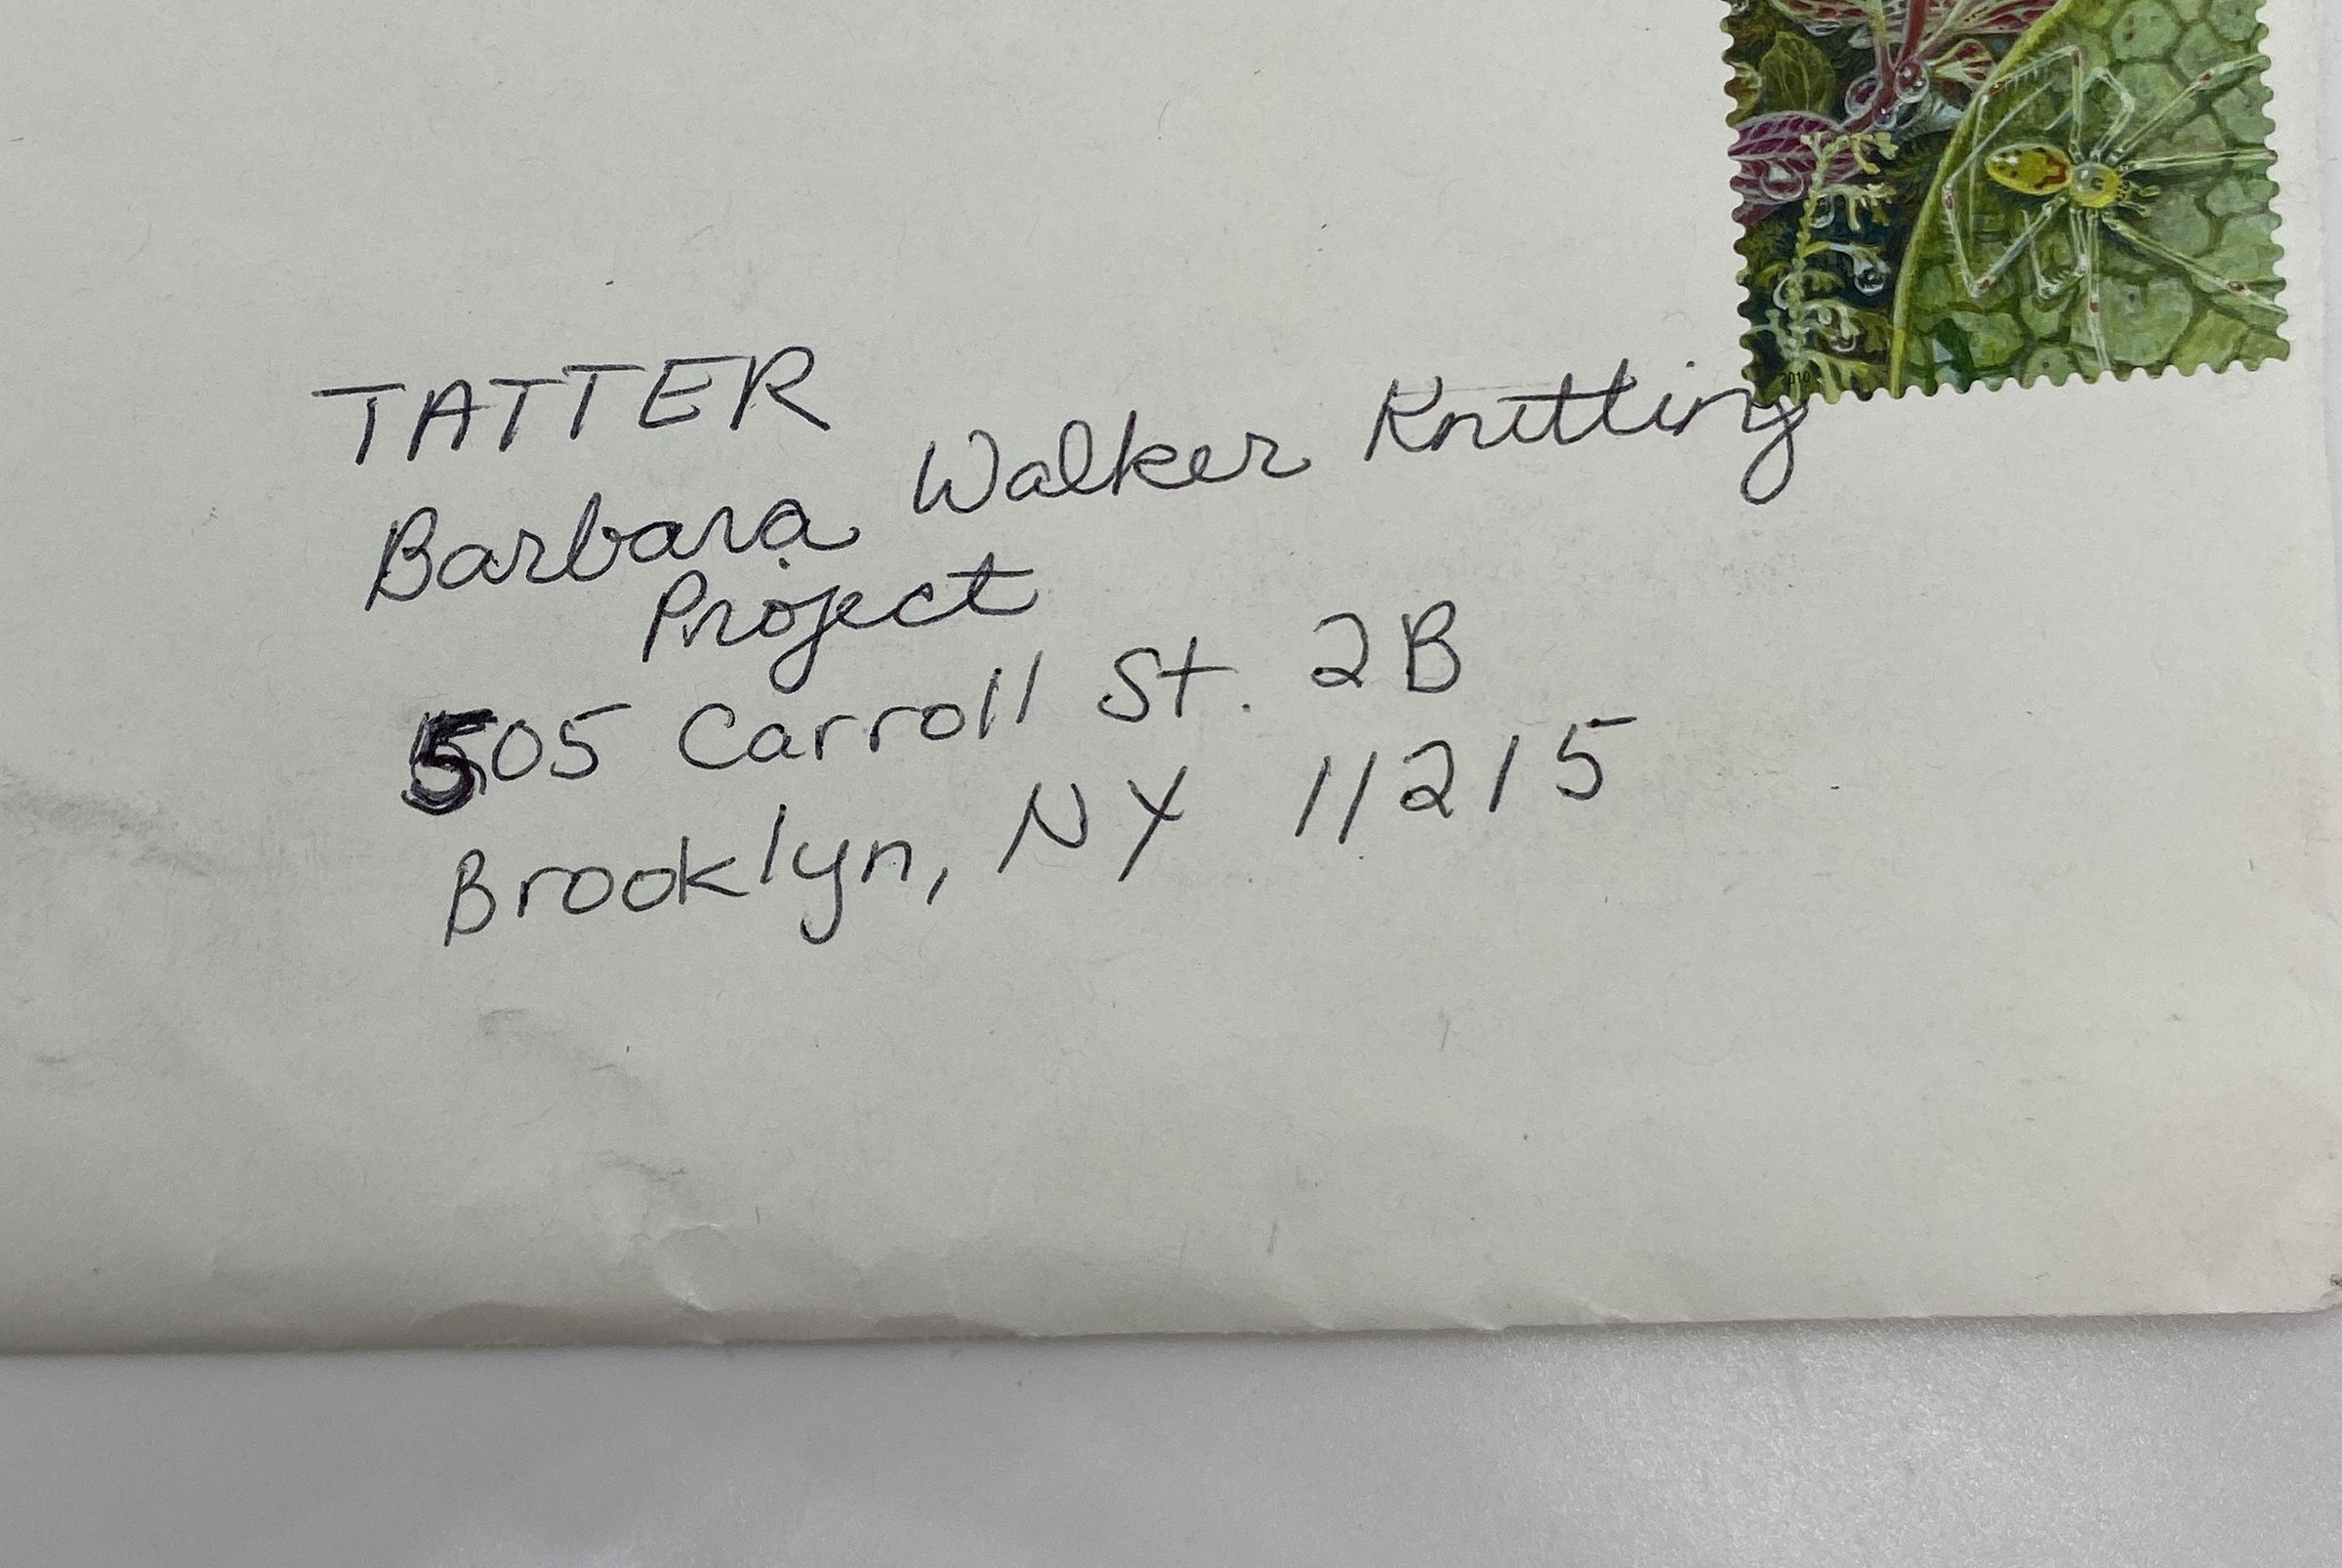 TATTER
Barbara Walker Knitting
Project
505 Carroll St. 2B
Brooklyn, NY 11215
2010